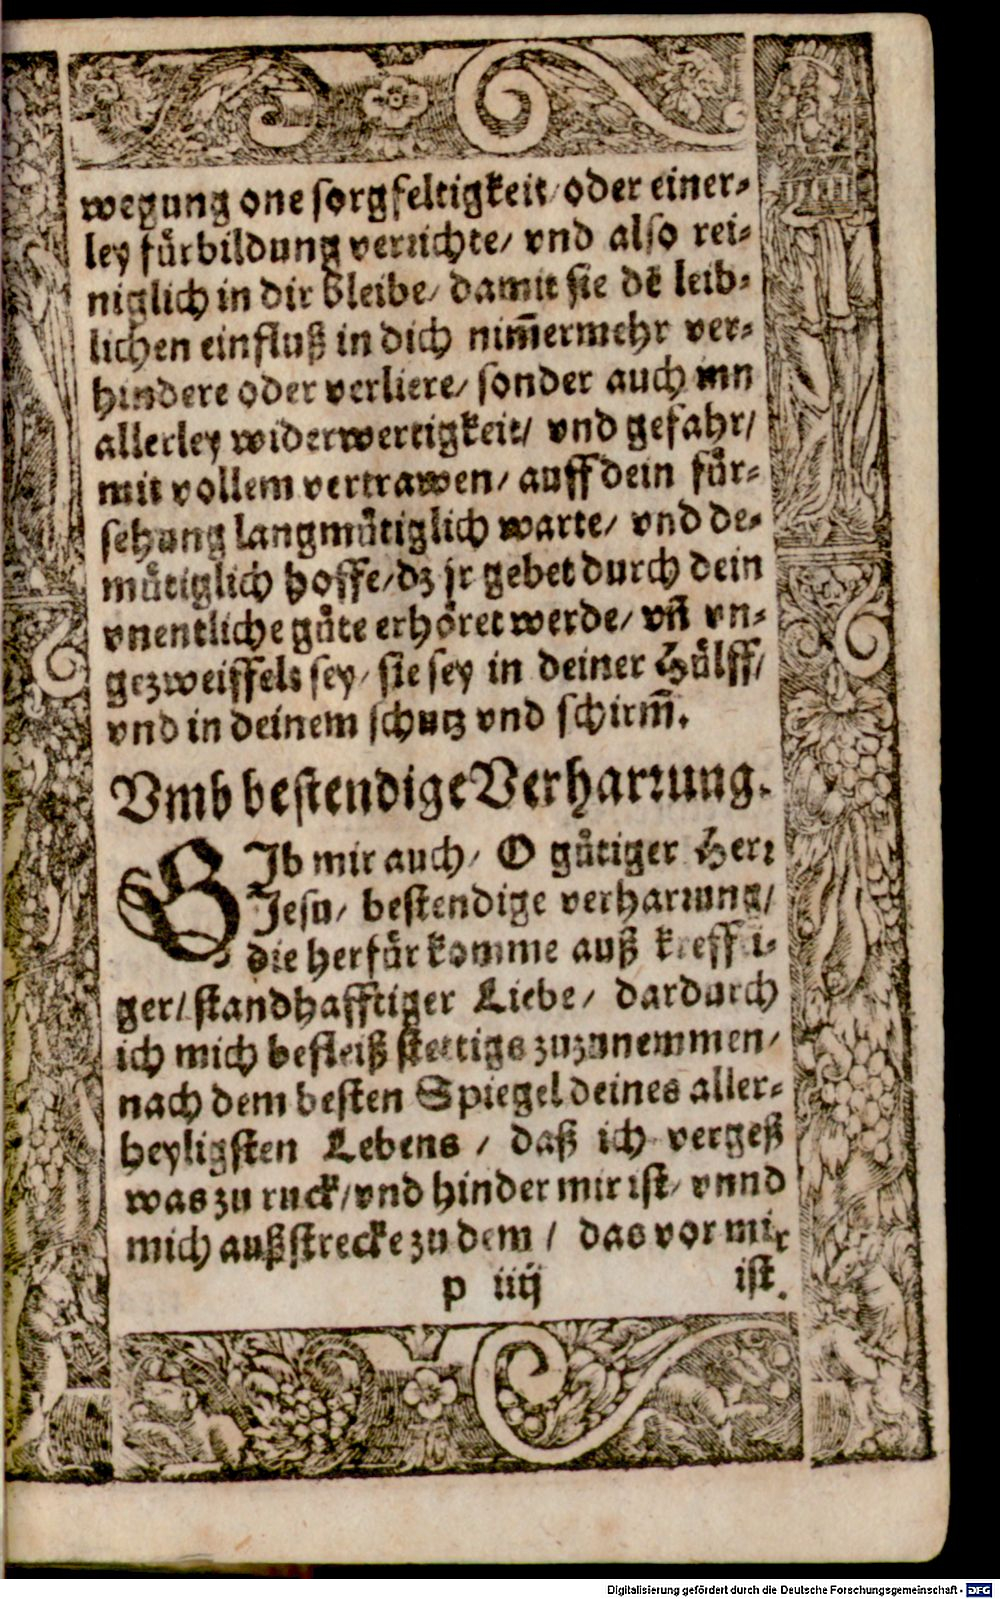 wegung one sorgfeltigkeit/ oder einer⸗
ley fürbildung verrichte/ vnd also rei⸗
niglich in dir bleibe/ damit sie dē leib⸗
lichen einfluß in dich nim̄ermehr ver⸗
hindere oder verliere/ sonder auch inn
allerley widerwertigkeit/ vnd gefahr/
mit vollem vertrawen/ auff dein für⸗
sehung langmütiglich warte/ vnd de⸗
mütiglich hoffe/ dz jr gebet durch dein
vnentliche güte erhöret werde/ vn̄ vn⸗
gezweiffels sey/ sie sey in deiner Hülff/
vnd in deinem schutz vnd schirm̄.
Vmb bestendige Verharrung.
GIb mir auch/ O gütiger Herr
Jesu/ bestendige verharrung/
die herfür komme auß kreffti⸗
ger/ standhafftiger Liebe/ dardurch
ich mich befleiß stettigs zuzunemmen/
nach dem besten Spiegel deines aller⸗
heyligsten Lebens / daß ich vergeß
was zu ruck/ vnd hinder mir ist/ vnnd
mich außstrecke zu dem / das vor mir
p iiij ist.
Digitalisierung gefördert durch die Deutsche Forschungsgemeinschaft - DFG